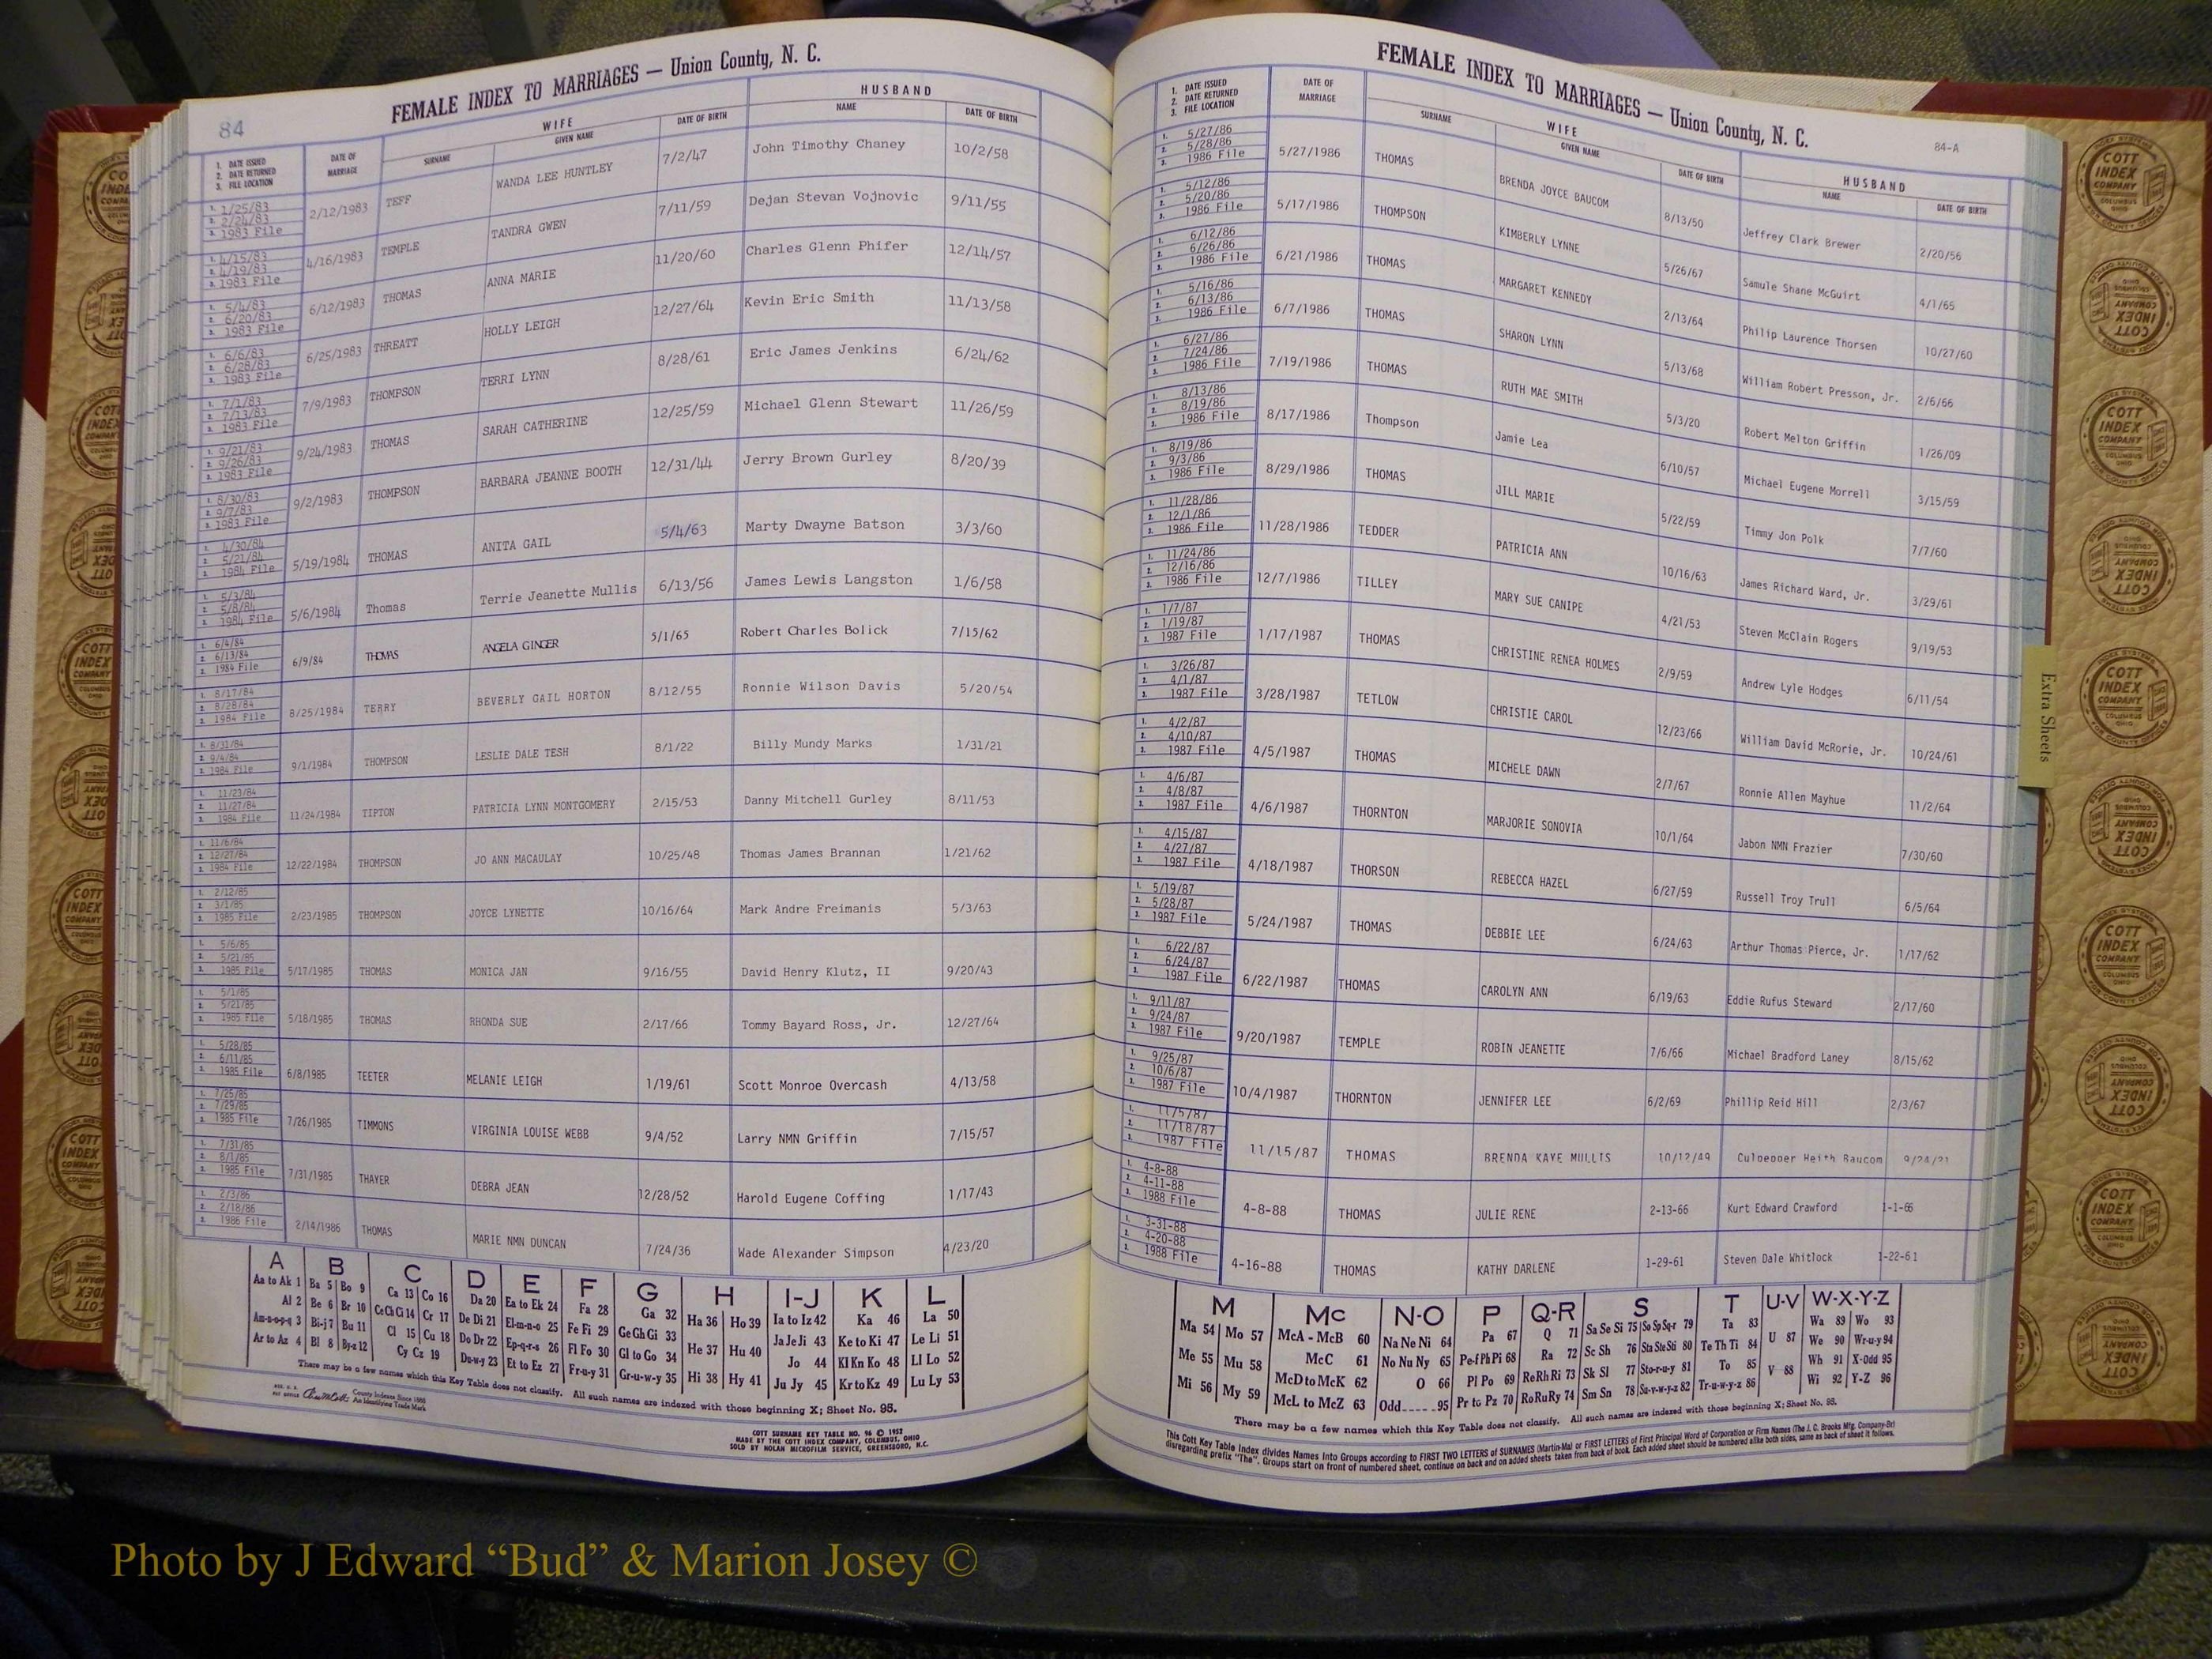 84
FEMALE INDEX TO MARRIAGES — Union County, N. C.
1. DATE ISSUED 2. DATE RETURNED 3. FILE LOCATION DATE OF MARRIAGE WIFE SURNAME GIVEN NAME DATE OF BIRTH HUSBAND NAME DATE OF BIRTH
1. 1/25/83 2. 2/24/83 3. 1983 File 2/12/1983 TEFF WANDA LEE HUNTLEY 7/2/47 John Timothy Chaney 10/2/58
1. 4/15/83 2. 4/19/83 3. 1983 File 4/16/1983 TEMPLE TANDRA GWEN 7/11/59 Dejan Stevan Vojnovic 9/11/55
1. 5/4/83 2. 6/20/83 3. 1983 File 6/12/1983 THOMAS ANNA MARIE 11/20/60 Charles Glenn Phifer 12/14/57
1. 6/6/83 2. 6/28/83 3. 1983 File 6/25/1983 THREATT HOLLY LEIGH 12/27/64 Kevin Eric Smith 11/13/58
1. 7/1/83 2. 7/13/83 3. 1983 File 7/9/1983 THOMPSON TERRI LYNN 8/28/61 Eric James Jenkins 6/24/62
1. 9/21/83 2. 9/26/83 3. 1983 File 9/24/1983 THOMAS SARAH CATHERINE 12/25/59 Michael Glenn Stewart 11/26/59
1. 8/30/83 2. 9/7/83 3. 1983 File 9/2/1983 THOMPSON BARBARA JEANNE BOOTH 12/31/44 Jerry Brown Gurley 8/20/39
1. 4/30/84 2. 5/21/84 3. 1984 File 5/19/1984 THOMAS ANITA GAIL 5/4/63 Marty Dwayne Batson 3/3/60
1. 5/3/84 2. 5/8/84 3. 1984 File 5/6/1984 Thomas Terrie Jeanette Mullis 6/13/56 James Lewis Langston 1/6/58
1. 6/4/84 2. 6/13/84 3. 1984 File 6/9/84 THOMAS ANGELA GINGER 5/1/65 Robert Charles Bolick 7/15/62
1. 8/17/84 2. 8/28/84 3. 1984 File 8/25/1984 TERRY BEVERLY GAIL HORTON 8/12/55 Ronnie Wilson Davis 5/20/54
1. 8/31/84 2. 9/4/84 3. 1984 File 9/1/1984 THOMPSON LESLIE DALE TESH 8/1/22 Billy Mundy Marks 1/31/21
1. 11/23/84 2. 11/27/84 3. 1984 File 11/24/1984 TIPTON PATRICIA LYNN MONTGOMERY 2/15/53 Danny Mitchell Gurley 8/11/53
1. 11/6/84 2. 12/27/84 3. 1984 File 12/22/1984 THOMPSON JO ANN MACAULAY 10/25/48 Thomas James Brannan 1/21/62
1. 2/12/85 2. 3/1/85 3. 1985 File 2/23/1985 THOMPSON JOYCE LYNETTE 10/16/64 Mark Andre Freimanis 5/3/63
1. 5/6/85 2. 5/21/85 3. 1985 File 5/17/1985 THOMAS MONICA JAN 9/16/55 David Henry Klutz, II 9/20/43
1. 5/1/85 2. 5/21/85 3. 1985 File 5/18/1985 THOMAS RHONDA SUE 2/17/66 Tommy Bayard Ross, Jr. 12/27/64
1. 5/28/85 2. 6/11/85 3. 1985 File 6/8/1985 TEETER MELANIE LEIGH 1/19/61 Scott Monroe Overcash 4/13/58
1. 7/25/85 2. 7/29/85 3. 1985 File 7/26/1985 TIMMONS VIRGINIA LOUISE WEBB 9/4/52 Larry NMN Griffin 7/15/57
1. 7/31/85 2. 8/1/85 3. 1985 File 7/31/1985 THAYER DEBRA JEAN 12/28/52 Harold Eugene Coffing 1/17/43
1. 2/3/86 2. 2/18/86 3. 1986 File 2/14/1986 THOMAS MARIE NMN DUNCAN 7/24/36 Wade Alexander Simpson 4/23/20
A B C D E F G H I-J K L
Aa to Ak 1 Ba 5 Bo 9 Ca 13 Co 16 Da 20 Ea to Ek 24 Fa 28 Ga 32 Ha 36 Ho 39 Ia to Iz 42 Ka 46 La 50
Al 2 Be 6 Br 10 Ce Ch Ci 14 Cr 17 De Di 21 El-m-n-o 25 Fe Fi 29 Ge Gh Gi 33 He 37 Hu 40 Ja Je Ji 43 Ke to Ki 47 Le Li 51
Am-n-o-p-q 3 Bi-j 7 Bu 11 Cl 15 Cu 18 Do Dr 22 Ep-q-r-s 26 Fl Fo 30 Gl to Go 34 Hi 38 Hy 41 Jo 44 Kl Kn Ko 48 Ll Lo 52
Ar to Az 4 Bl 8 By-z 12 Cy Cz 19 Du-w-y 23 Et to Ez 27 Fr-u-y 31 Gr-u-w-y 35 Ju Jy 45 Kr to Kz 49 Lu Ly 53
There may be a few names which this Key Table does not classify. All such names are indexed with those beginning X; Sheet No. 95.
County Indexes Since 1888
An Identifying Trade Mark
COTT SURNAME KEY TABLE NO. 96 © 1952
MADE BY THE COTT INDEX COMPANY, COLUMBUS, OHIO
SOLD BY NOLAN MICROFILM SERVICE, GREENSBORO, N.C.
FEMALE INDEX TO MARRIAGES — Union County, N. C.
84-A
1. DATE ISSUED 2. DATE RETURNED 3. FILE LOCATION DATE OF MARRIAGE SURNAME WIFE GIVEN NAME DATE OF BIRTH HUSBAND NAME DATE OF BIRTH
1. 5/27/86 2. 5/28/86 3. 1986 File 5/27/1986 THOMAS BRENDA JOYCE BAUCOM 8/13/50 Jeffrey Clark Brewer 2/20/56
1. 5/12/86 2. 5/20/86 3. 1986 File 5/17/1986 THOMPSON KIMBERLY LYNNE 5/26/67 Samule Shane McGuirt 4/1/65
1. 6/12/86 2. 6/26/86 3. 1986 File 6/21/1986 THOMAS MARGARET KENNEDY 2/13/64 Philip Laurence Thorsen 10/27/60
1. 5/16/86 2. 6/13/86 3. 1986 File 6/7/1986 THOMAS SHARON LYNN 5/13/68 William Robert Presson, Jr. 2/6/66
1. 6/27/86 2. 7/24/86 3. 1986 File 7/19/1986 THOMAS RUTH MAE SMITH 5/3/20 Robert Melton Griffin 1/26/09
1. 8/13/86 2. 8/19/86 3. 1986 File 8/17/1986 Thompson Jamie Lea 6/10/57 Michael Eugene Morrell 3/15/59
1. 8/19/86 2. 9/3/86 3. 1986 File 8/29/1986 THOMAS JILL MARIE 5/22/59 Timmy Jon Polk 7/7/60
1. 11/28/86 2. 12/1/86 3. 1986 File 11/28/1986 TEDDER PATRICIA ANN 10/16/63 James Richard Ward, Jr. 3/29/61
1. 11/24/86 2. 12/16/86 3. 1986 File 12/7/1986 TILLEY MARY SUE CANIPE 4/21/53 Steven McClain Rogers 9/19/53
1. 1/7/87 2. 1/19/87 3. 1987 File 1/17/1987 THOMAS CHRISTINE RENEA HOLMES 2/9/59 Andrew Lyle Hodges 6/11/54
1. 3/26/87 2. 4/1/87 3. 1987 File 3/28/1987 TETLOW CHRISTIE CAROL 12/23/66 William David McRorie, Jr. 10/24/61
1. 4/2/87 2. 4/10/87 3. 1987 File 4/5/1987 THOMAS MICHELE DAWN 2/7/67 Ronnie Allen Mayhue 11/2/64
1. 4/6/87 2. 4/8/87 3. 1987 File 4/6/1987 THORNTON MARJORIE SONOVIA 10/1/64 Jabon NMN Frazier 7/30/60
1. 4/15/87 2. 4/27/87 3. 1987 File 4/18/1987 THORSON REBECCA HAZEL 6/27/59 Russell Troy Trull 6/5/64
1. 5/19/87 2. 5/28/87 3. 1987 File 5/24/1987 THOMAS DEBBIE LEE 6/24/63 Arthur Thomas Pierce, Jr. 1/17/62
1. 6/22/87 2. 6/24/87 3. 1987 File 6/22/1987 THOMAS CAROLYN ANN 6/19/63 Eddie Rufus Steward 2/17/60
1. 9/11/87 2. 9/24/87 3. 1987 File 9/20/1987 TEMPLE ROBIN JEANETTE 7/6/66 Michael Bradford Laney 8/15/62
1. 9/25/87 2. 10/6/87 3. 1987 File 10/4/1987 THORNTON JENNIFER LEE 6/2/69 Phillip Reid Hill 2/3/67
1. 11/5/87 2. 11/18/87 3. 1987 File 11/15/87 THOMAS BRENDA KAYE MULLIS 10/12/49 Culpepper Heith Baucom 9/24/21
1. 4-8-88 2. 4-11-88 3. 1988 File 4-8-88 THOMAS JULIE RENE 2-13-66 Kurt Edward Crawford 1-1-66
1. 3-31-88 2. 4-20-88 3. 1988 File 4-16-88 THOMAS KATHY DARLENE 1-29-61 Steven Dale Whitlock 1-22-61
M Mc N-O P Q-R S T U-V W-X-Y-Z
Ma 54 Mo 57 McA - McB 60 Na Ne Ni 64 Pa 67 Q 71 Sa Se Si 75 So Sp Sq-r 79 Ta 83 U 87 Wa 89 Wo 93
Me 55 Mu 58 McC 61 No Nu Ny 65 Pe-f Ph Pi 68 Ra 72 Sc Sh 76 Sta Ste Sti 80 Te Th Ti 84 V 88 We 90 Wr-u-y 94
Mi 56 My 59 McD to McK 62 O 66 Pl Po 69 Re Rh Ri 73 Sk Sl 77 Sto-r-u-y 81 To 85 Wh 91 X-Odd 95
McL to McZ 63 Odd 95 Pr to Pz 70 Ro Ru Ry 74 Sm Sn 78 Su-v-w-y-z 82 Tr-u-w-y-z 86 Wi 92 Y-Z 96
There may be a few names which this Key Table does not classify. All such names are indexed with those beginning X; Sheet No. 95.
This Cott Key Table Index divides Names Into Groups according to FIRST TWO LETTERS of SURNAMES (Martin-Ma) or FIRST LETTERS of First Principal Word of Corporation or Firm Names (The J. C. Brooks Mfg. Company-Br)
disregarding prefix "The". Groups start on front of numbered sheet, continue on back and on added sheets taken from back of book. Each added sheet should be numbered alike both sides, same as back of sheet it follows.
Extra Sheets
COTT INDEX COMPANY COLUMBUS OHIO
Photo by J Edward “Bud” & Marion Josey ©